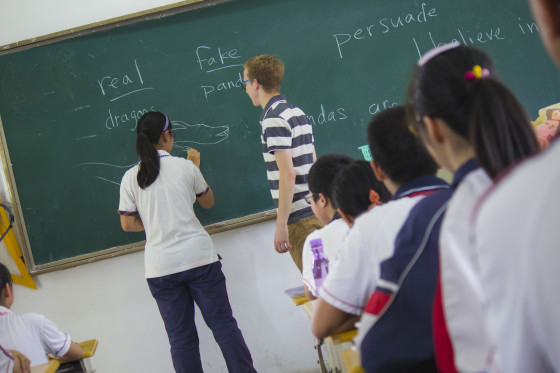 real
dragons
fake
pand
persuade
I believe in
ndas are